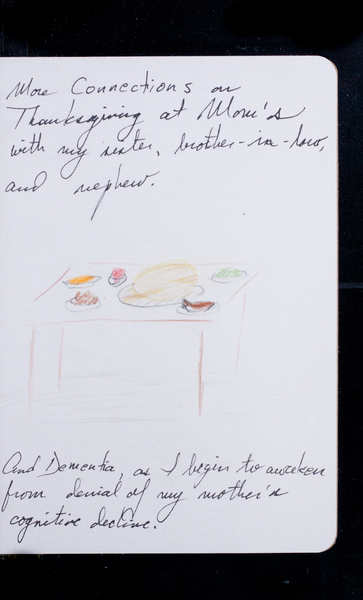 More Connections on
Thanksgiving at Mom's
with my sister, brother-in-law,
and nephew.
And Dementia, as I begin to awaken
from denial of my mother's
cognitive decline.